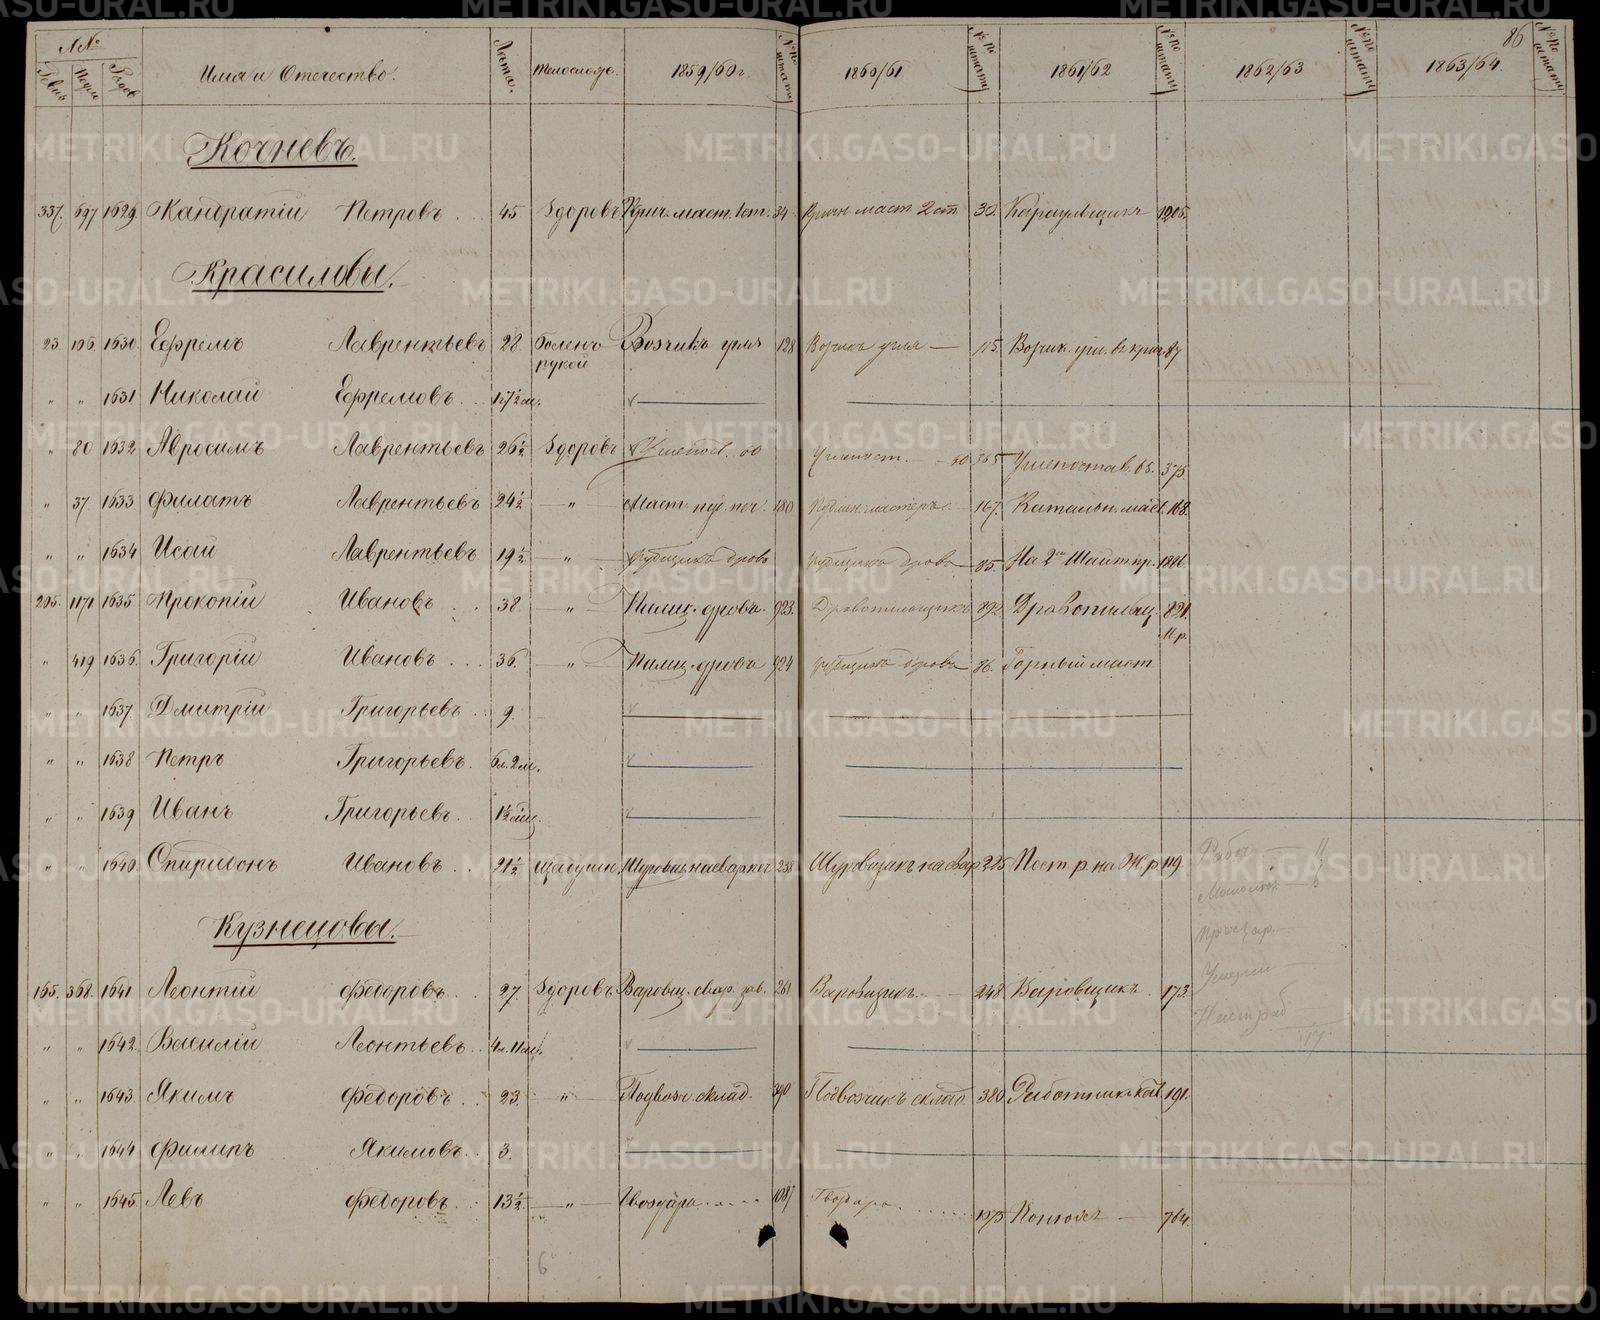 86
№№ Имя и Отечество. Лета. Телослож. 1859/60 г. № по штату 1860/61 № по штату 1861/62 № по штату 1862/63 № по штату 1863/64. № по штату
Кочневъ.
337. 697 1629 Кандратій Петровъ 45 Здоровъ Крич. маст. 1 ст. 34 Кричн. маст. 2 ст. 32. Караульщикъ 1205.
Красиловы.
23. 196. 1630. Ефремъ Лаврентьевъ 28 боленъ рукой Возчикъ угля 128 Возчикъ угля — 115 Возчик. угл. в крич. 87
" " 1631 Николай Ефремовъ
" 80 1632 Авросимъ Лаврентьевъ 26½ Здоровъ Углепост. 60 Углепост. — 365 Углепостав. 65. 375.
" 37. 1633 Филатъ Лаврентьевъ 24½ — " — Маст. пуд. печ. 180 Пудлин. мастеръ 167. Катальн. маст. 168.
" " 1634 Исай Лаврентьевъ 19½ — " — Рубщикъ дровъ Рубщикъ дровъ — 85. На Шайтир. 1886.
205. 1171 1635 Прокопій Ивановъ 38. " Пилщ. дровъ. 923. Дровопильщикъ 892. Дровопильщ. 821.
" 419 1636. Григорій Ивановъ 36. " Пилщ. дровъ 924 Рубщикъ дровъ 86. Горный маст. М.р.
" " 1637. Дмитрій Григорьевъ 9.
" " 1638 Петръ Григорьевъ. 6 л. 2 м.
" " 1639 Иванъ Григорьевъ.
" " 1640. Спиридонъ Ивановъ. 21½ Шуровщ. на сварке 238 Шуровщикъ на свар. 225 Пост. р. на Ж. р. 119
Кузнецовы.
165. 368. 1641 Леонтій Федоровъ 27. Здоровъ Варовщ. свар. зав. 261 Варовщикъ 248. Варовщикъ. 173.
" " 1642. Василій Леонтьевъ 4 л. 11 м.
" " 1643. Якимъ Федоровъ 23. — " — Подвозч. склад. 390 Подвозчикъ склад. 380. Работникъ 191.
" " 1644 Филипъ Якимовъ. 3.
" " 1645. Левъ Федоровъ 13½ — " — Гвоздарь 1087 Гвоздарь 1075 Конюхъ — 764.
6
METRIKI.GASO-URAL.RU